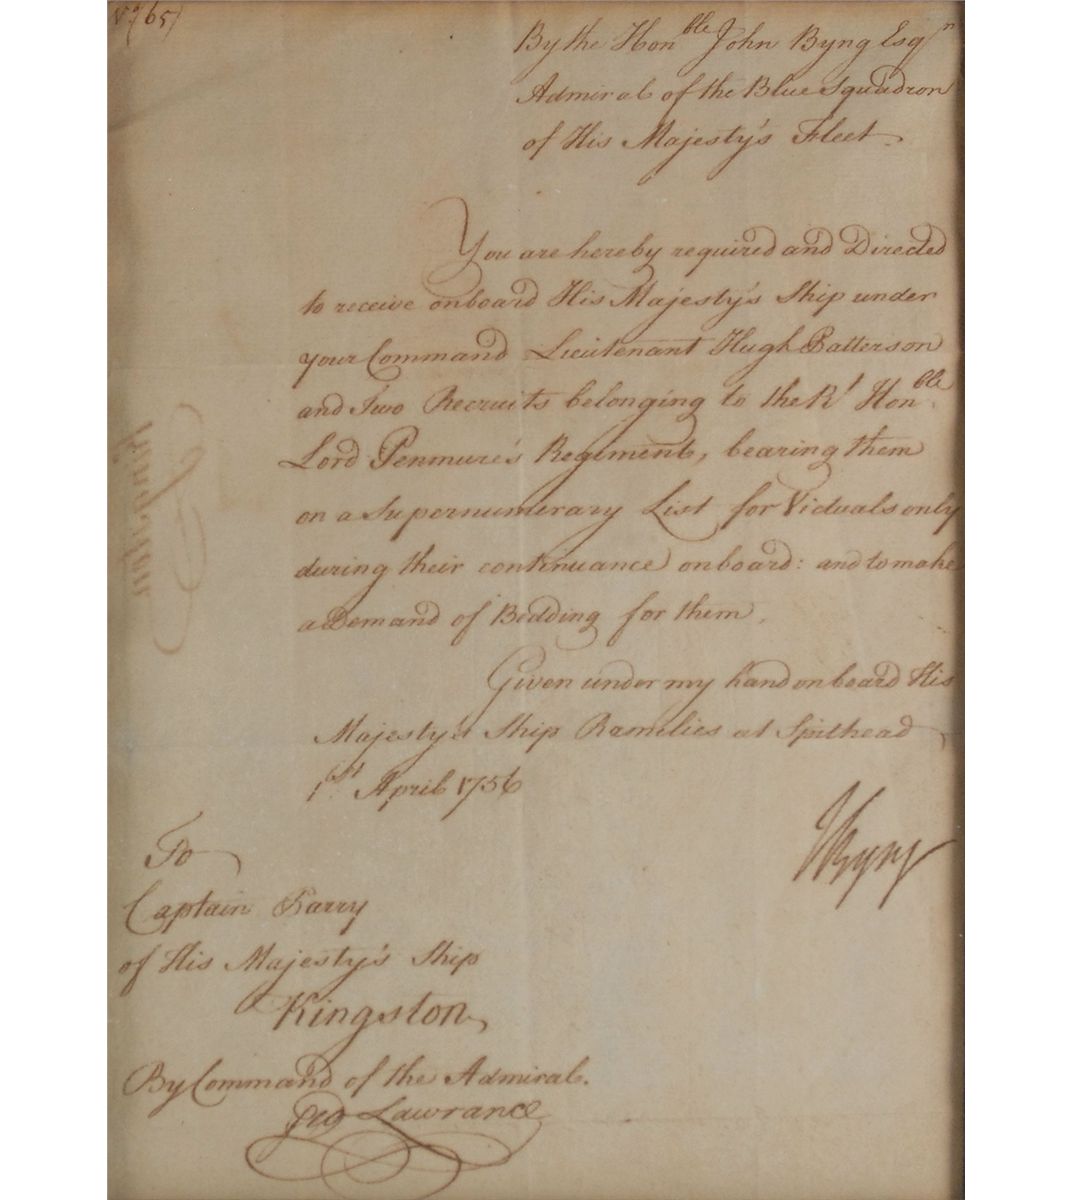 No/65/
By the Honble John Byng Esqr
Admiral of the Blue Squadron
of His Majesty's Fleet.
You are hereby required and Directed
to receive onboard His Majesty's Ship under
your Command Lieutenant Hugh Patterson
and Two Recruits belonging to the Rt Honble
Lord Penmure's Regiment, bearing them
on a Supernumerary List for Victuals only
during their continuance onboard: and to make
a Demand of Bedding for them.
Given under my hand onboard His
Majesty's Ship Ramelies at Spithead
1st April 1756
JByng
To
Captain Parry
of His Majesty's Ship
Kingston
By Command of the Admiral.
Geo Lawrance